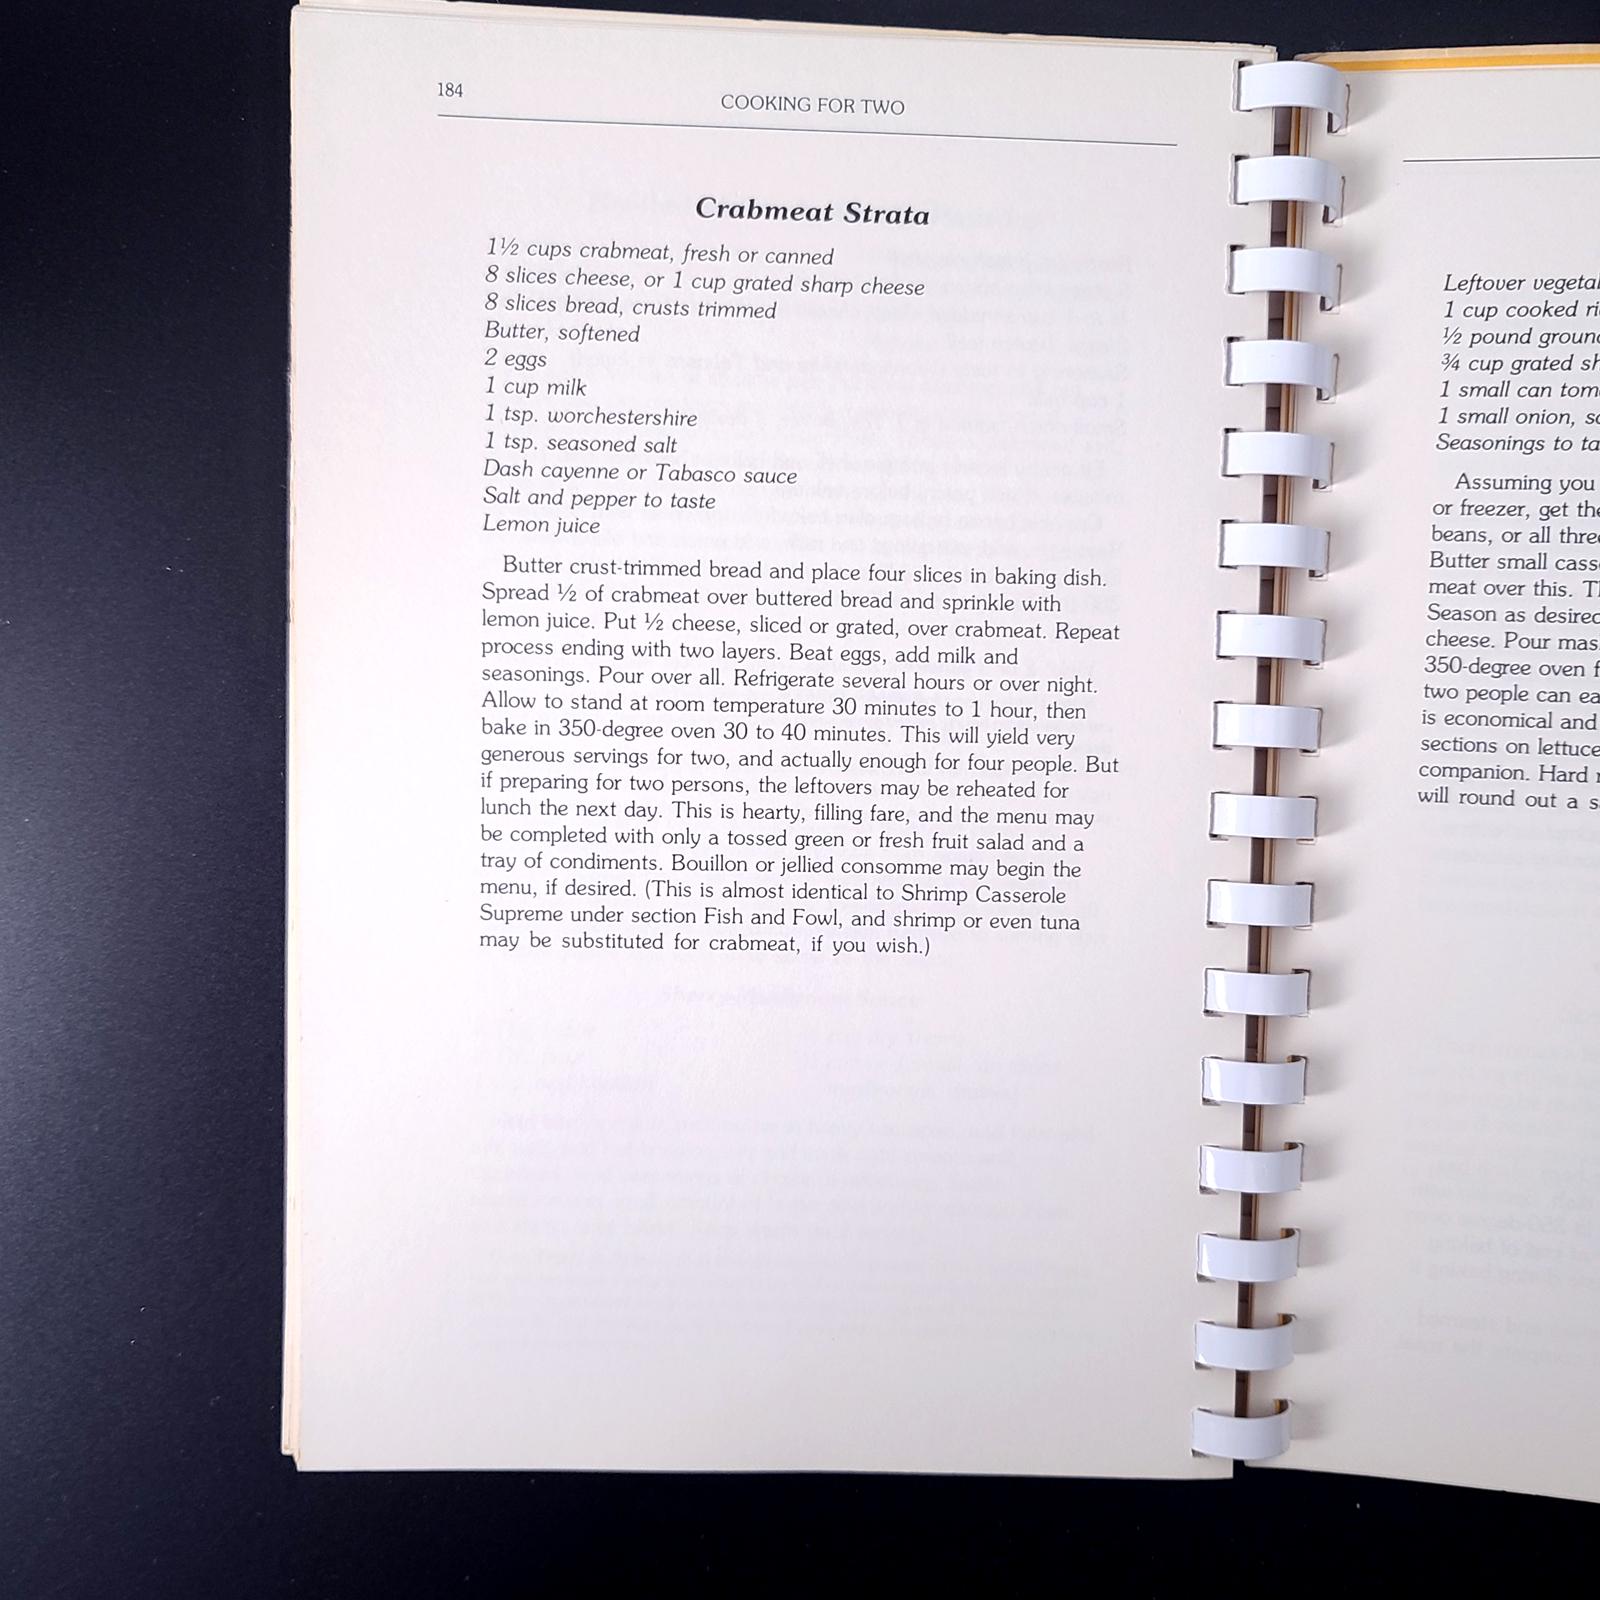 184
COOKING FOR TWO
Crabmeat Strata
1½ cups crabmeat, fresh or canned
8 slices cheese, or 1 cup grated sharp cheese
8 slices bread, crusts trimmed
Butter, softened
2 eggs
1 cup milk
1 tsp. worchestershire
1 tsp. seasoned salt
Dash cayenne or Tabasco sauce
Salt and pepper to taste
Lemon juice
Butter crust-trimmed bread and place four slices in baking dish.
Spread ½ of crabmeat over buttered bread and sprinkle with
lemon juice. Put ½ cheese, sliced or grated, over crabmeat. Repeat
process ending with two layers. Beat eggs, add milk and
seasonings. Pour over all. Refrigerate several hours or over night.
Allow to stand at room temperature 30 minutes to 1 hour, then
bake in 350-degree oven 30 to 40 minutes. This will yield very
generous servings for two, and actually enough for four people. But
if preparing for two persons, the leftovers may be reheated for
lunch the next day. This is hearty, filling fare, and the menu may
be completed with only a tossed green or fresh fruit salad and a
tray of condiments. Bouillon or jellied consomme may begin the
menu, if desired. (This is almost identical to Shrimp Casserole
Supreme under section Fish and Fowl, and shrimp or even tuna
may be substituted for crabmeat, if you wish.)
Leftover
1 cup cooked
½ pound
¾ cup grated
1 small can
1 small onion,
Seasonings to
Assuming you
or freezer, get
beans, or all
Butter small
meat over this.
Season as
cheese. Pour
350-degree oven
two people can
is economical and
sections on
companion. Hard
will round out a